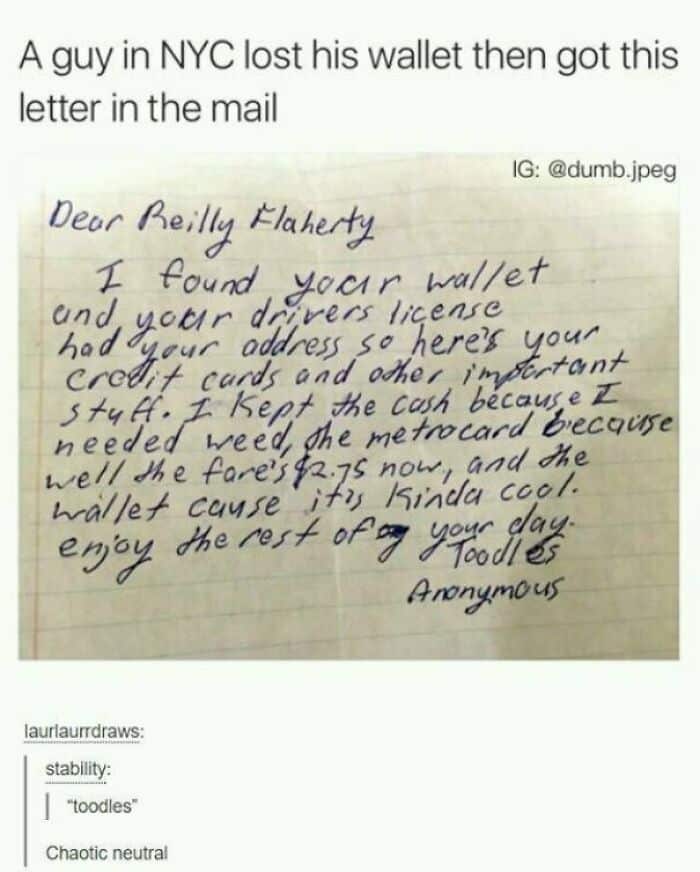 A guy in NYC lost his wallet then got this
letter in the mail
IG: @dumb.jpeg
Dear Reilly Flaherty
I found your wallet
and your drivers license
had your address so here's your
credit cards and other important
stuff. I kept the cash because I
needed weed, the metrocard because
well the fare's $2.75 now, and the
wallet cause it's kinda cool.
enjoy the rest of your day.
Toodles
Anonymous
laurlaurrdraws:
stability:
"toodles"
Chaotic neutral